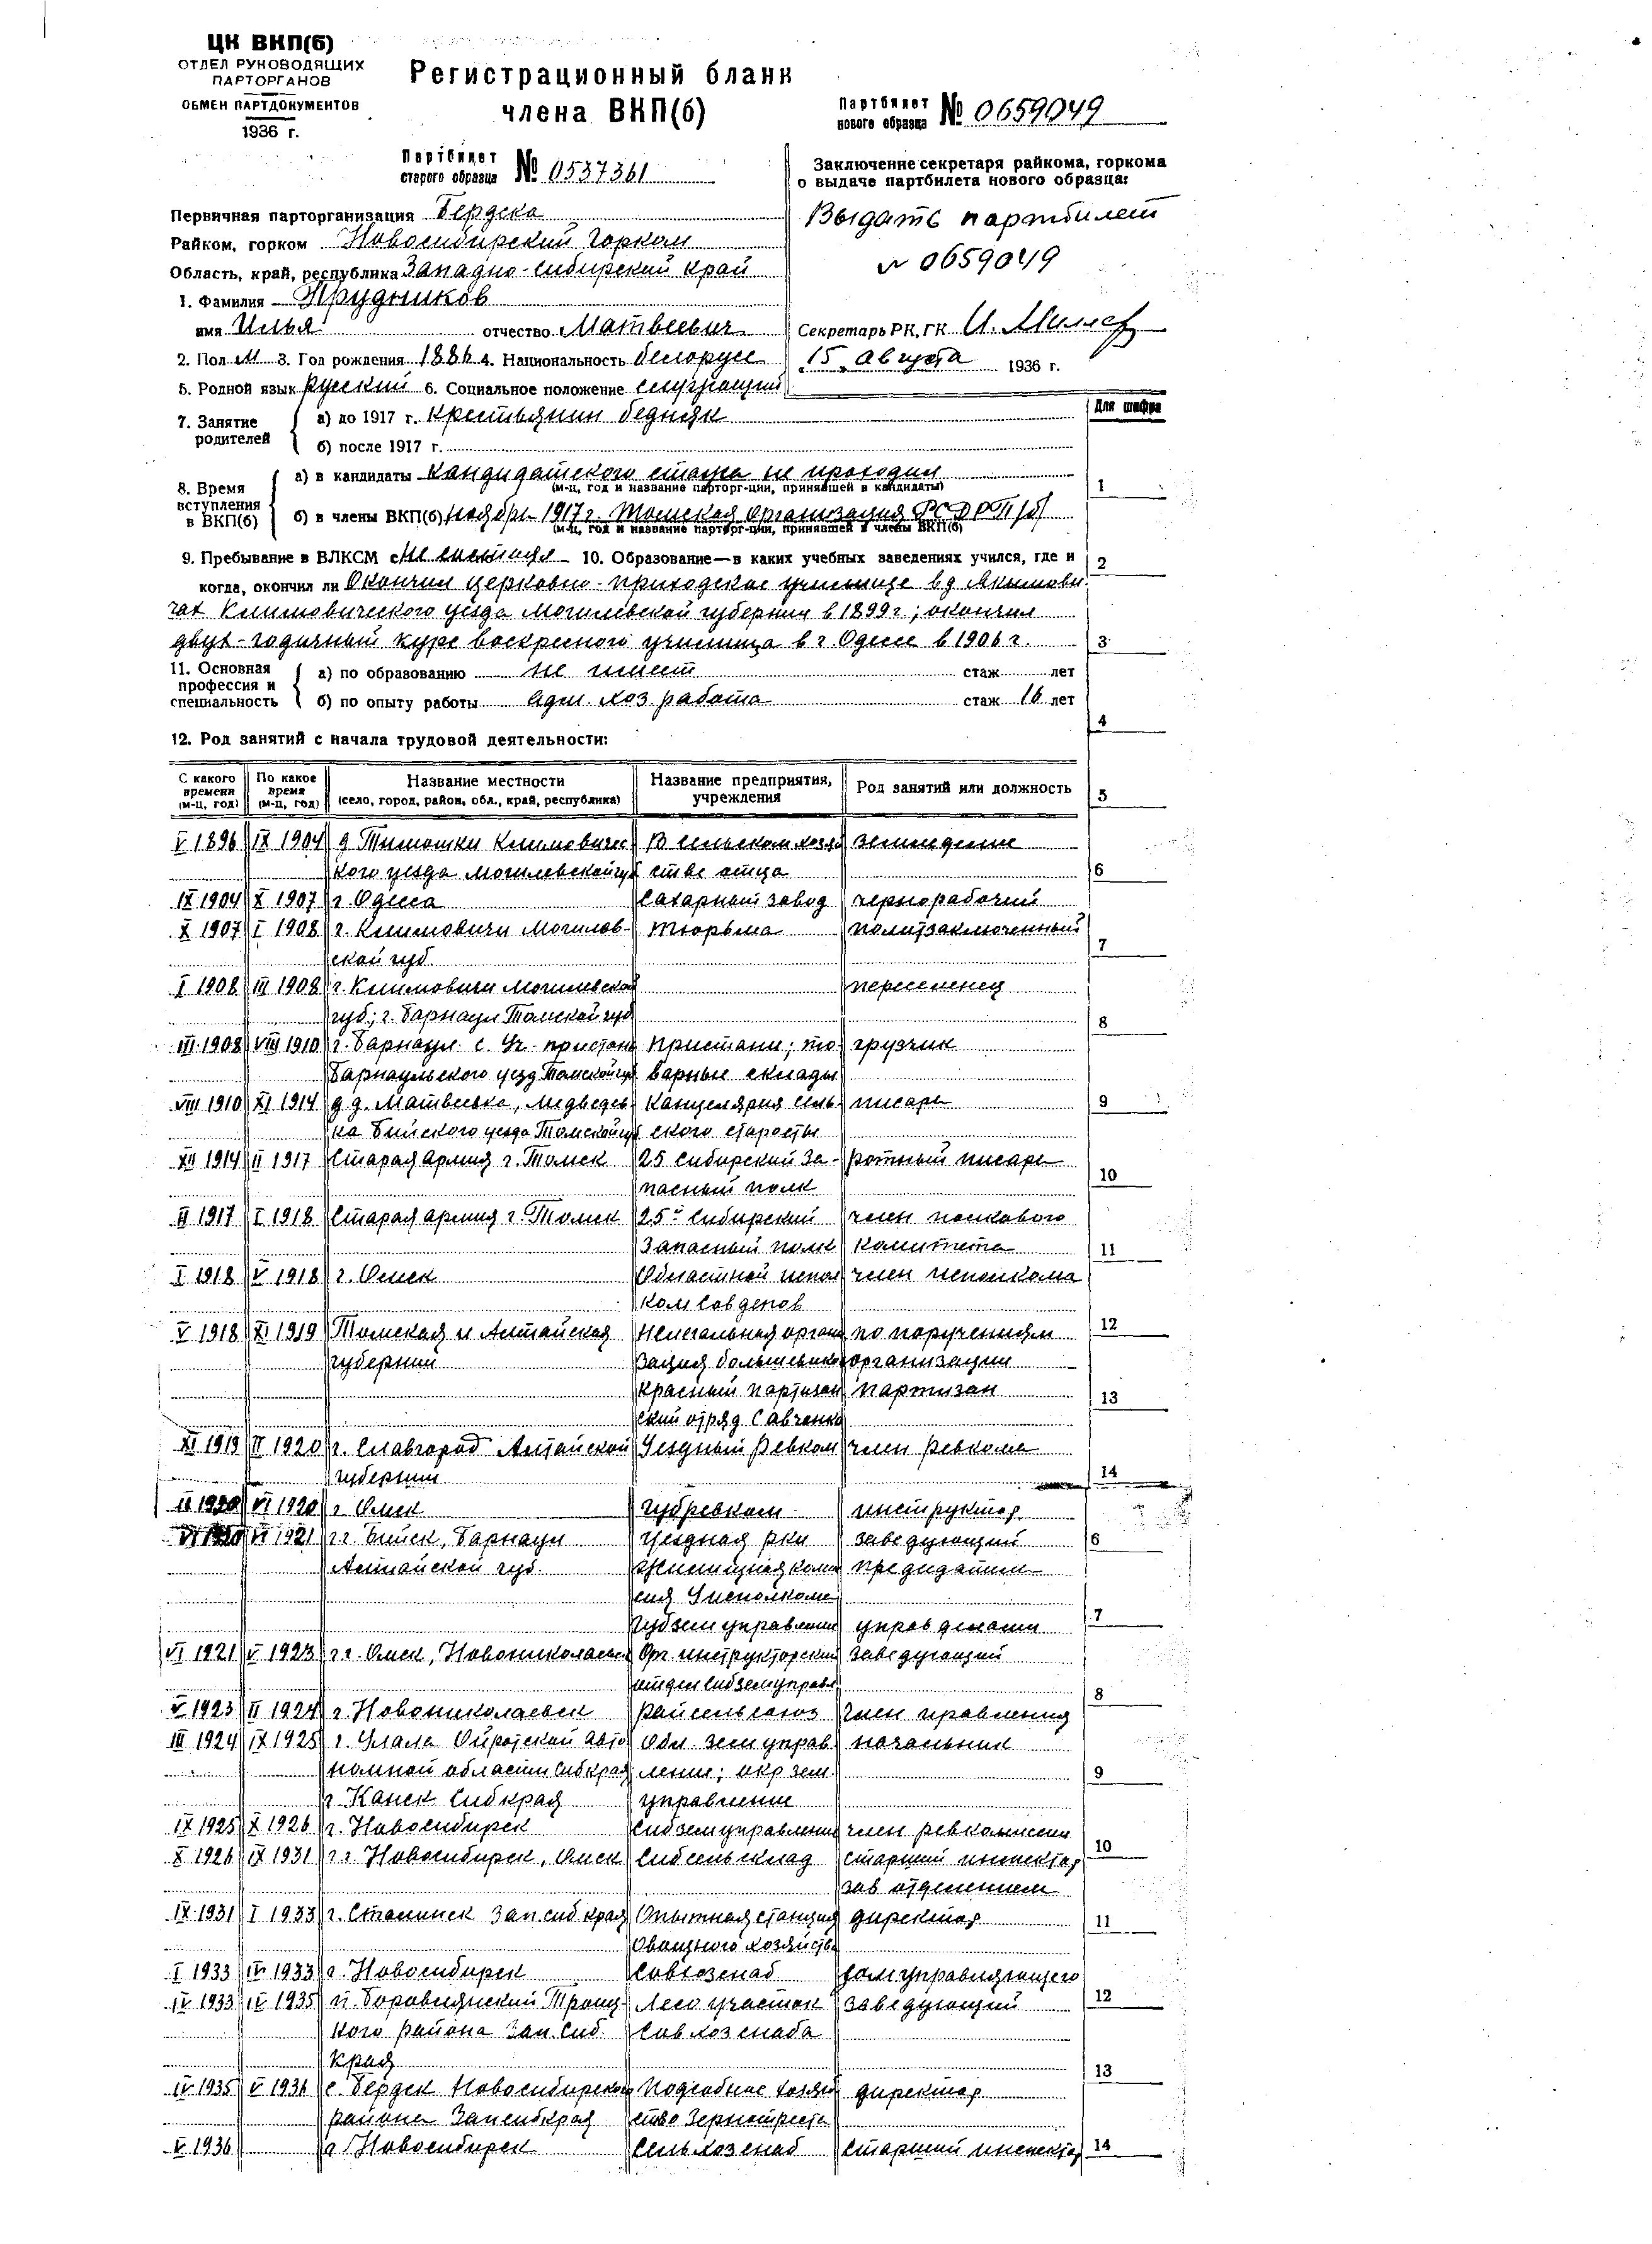 ЦК ВКП(б)
ОТДЕЛ РУКОВОДЯЩИХ
ПАРТОРГАНОВ
ОБМЕН ПАРТДОКУМЕНТОВ
1936 г.
Регистрационный бланк
члена ВКП(б)
Партбилет нового образца № 0659049
Партбилет старого образца № 0537361
Заключение секретаря райкома, горкома
о выдаче партбилета нового образца:
Выдать партбилет
№ 0659049
Первичная парторганизация Бердска
Райком, горком Новосибирский Горком
Область, край, республика Западно-Сибирский край
1. Фамилия Прудников
имя Илья отчество Матвеевич Секретарь РК, ГК
2. Пол М 3. Год рождения 1886 4. Национальность белорусс 15 августа 1936 г.
5. Родной язык русский 6. Социальное положение служащий
Для шифра
7. Занятие родителей
а) до 1917 г. крестьянин бедняк
б) после 1917 г.
8. Время вступления в ВКП(б)
а) в кандидаты кандидатского стажа не проходил
(м-ц, год и название парторг-ции, принявшей в кандидаты)
1
б) в члены ВКП(б) ноябрь 1917 г. Томская Организация РСДРП(б)
(м-ц, год и название парторг-ции, принявшей в члены ВКП(б)
9. Пребывание в ВЛКСМ с не состоял 10. Образование — в каких учебных заведениях учился, где и 2
когда, окончил ли Окончил церковно-приходское училище в д.
Климовического уезда Могилевской губернии в 1899 г., окончил
двух-годичный курс воскресного училища в г. Одессе в 1906 г. 3
11. Основная профессия и специальность
а) по образованию не имеет стаж лет
б) по опыту работы Адм. хоз. работа стаж 16 лет
4
12. Род занятий с начала трудовой деятельности:
С какого времени (м-ц, год) По какое время (м-ц, год) Название местности (село, город, район, обл., край, республика) Название предприятия, учреждения Род занятий или должность 5
V 1896 IX 1904 д. Тимошки Климовичс В сельском хозяй земледелие
кого уезда Могилевской губ стве отца 6
IX 1904 X 1907 г. Одесса Сахарный завод чернорабочий
X 1907 I 1908 г. Климовичи Могилев Тюрьма политзаключенный
ской губ. 7
I 1908 III 1908 г. Климовичи Могилевской переселенец
губ.; г. Барнаул Томской губ 8
III 1908 VIII 1910 г. Барнаул с. Ус. пристань Пристани; то грузчик
Барнаульского уезд Томской губ варные склады
VIII 1910 XI 1914 д.д. Матвеевка, Медведев Канцелярия сель писарь 9
ка Бийского уезда Томской губ ского старосты
XII 1914 II 1917 Старая армия г. Томск 25 Сибирский За- ротный писарь 10
пасный полк
II 1917 I 1918 Старая армия г. Томск 25й Сибирский член полкового
Запасный полк комитета 11
I 1918 V 1918 г. Омск Областной испол член исполкома
ком Совдепов
V 1918 XI 1919 Томская и Алтайская Нелегальная органи по поручениям 12
губернии зация большевиков организации
Красный партизан партизан 13
ский отряд Савченко
XI 1919 II 1920 г. Славгород Алтайской Уездный Ревком член Ревкома
губернии 14
II 1920 VI 1920 г. Омск Губревком инструктор
VI 1920 VI 1921 г.г. Бийск, Барнаул Уездная РКИ заведующий 6
Алтайской губ. Жилищная комис председатель
сия Уисполкома
Губземуправление управ делами 7
VI 1921 V 1923 г.г. Омск, Новониколаевск Орг. инструкторский заведующий
отдел Сибземуправл
V 1923 II 1924 г. Новониколаевск Райсельсоюз Член правления 8
III 1924 IX 1925 г. Улала Ойротской авто Обл. земуправ начальник
номной области Сибкрая ление; окр зем. 9
г. Канск Сибкрая управление
IX 1925 X 1926 г. Новосибирск Сибземуправление член ревкомиссии
X 1926 IX 1931 г.г. Новосибирск, Омск Сибсельсклад старший инспектор, 10
зав отделением
IX 1931 I 1933 г. Сталинск Запсибкрая Опытная станция директор 11
Овощного хозяйства
I 1933 IV 1933 г. Новосибирск Совхозснаб зам. управляющего
IV 1933 IV 1935 п. Боровлянский Троиц Лесоучасток заведующий 12
кого района Зап. Сиб. Совхозснаба
края 13
IV 1935 V 1936 с. Бердск Новосибирского Подсобное хозяй директор
района Запсибкрая ство Зернотреста
V 1936 г. Новосибирск Сельхозснаб старший инспектор 14